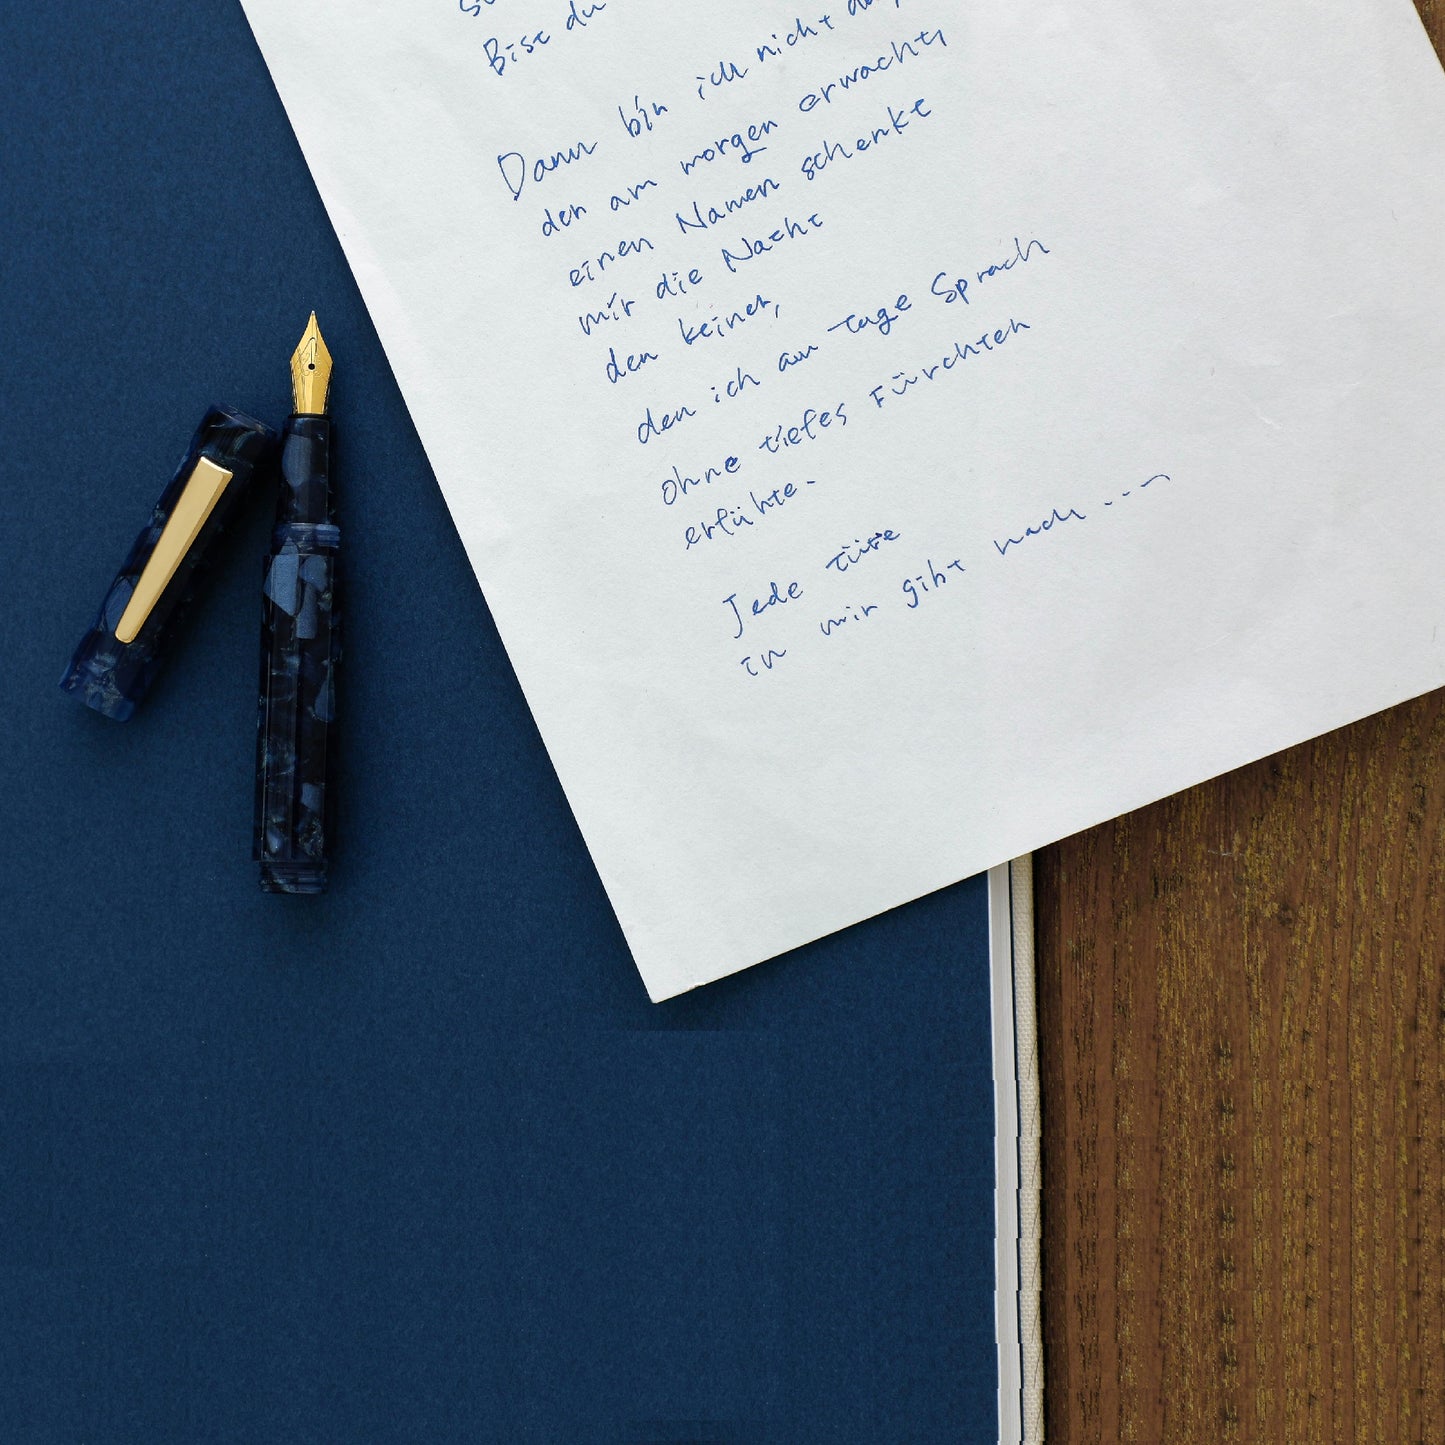 Bist du
Dann bin ich nicht
den am morgen erwacht,
einen Namen schenkt
mir die Nacht
den keiner,
den ich am tage Sprach
ohne tiefes Fürchten
erfühte.
Jede türe
in mir gibt nach...